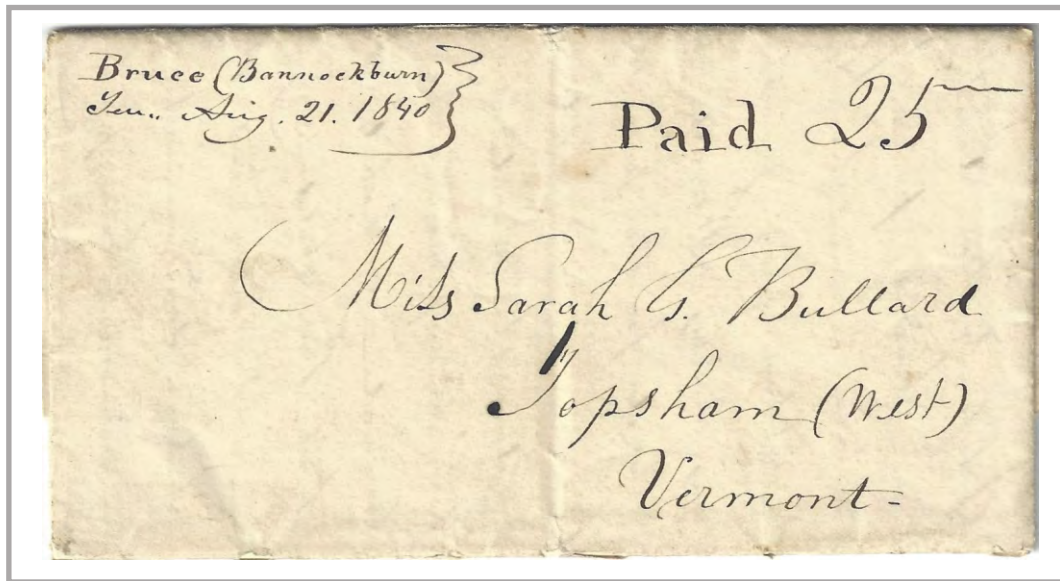 Bruce (Bannockburn)
Ten. Aug. 21. 1840
Paid 25
Miss Sarah G. Bullard
Topsham (West)
Vermont